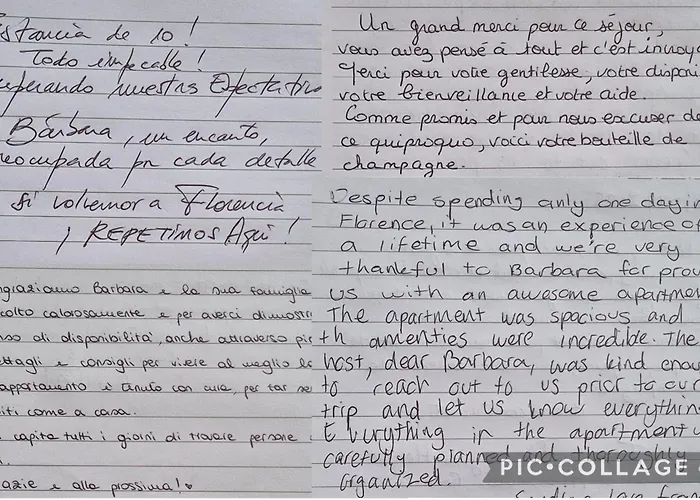 stancia de 10!
Todo impecable!
uperando nuestras Expectativ
Bárbara, un encanto,
eocupada por cada detalle
Si volvemos a Florencia
¡ REPETIMOS Aquí!
Un grand merci pour ce séjour,
vous avez pensé à tout et c'est incroya
Merci pour votre gentillesse, votre disponi
votre bienveillance et votre aide.
Comme promis et pour nous excuser de
ce quiproquo, voici votre bouteille de
champagne.
ngraziamo Barbara e la sua famiglia
colto calorosamente e per averci dimostr
nso di disponibilità, anche attraverso pic
ettagli e consigli per vivere al meglio la
appartamento è tenuto con cura, per far se
iti come a casa.
capita tutti i giorni di trovare persone
azie e alla prossima!
Despite spending only one day in
Florence, it was an experience of
a lifetime and we're very
thankful to Barbara for prov
us with an awesome apartmen
The apartment was spacious and
th amenties were incredible. The
host, dear Barbara, was kind enou
to reach out to us prior to our
trip and let us know everythin
Everything in the apartment w
carefully planned and thoroughly
organized.
PIC•COLLAGE